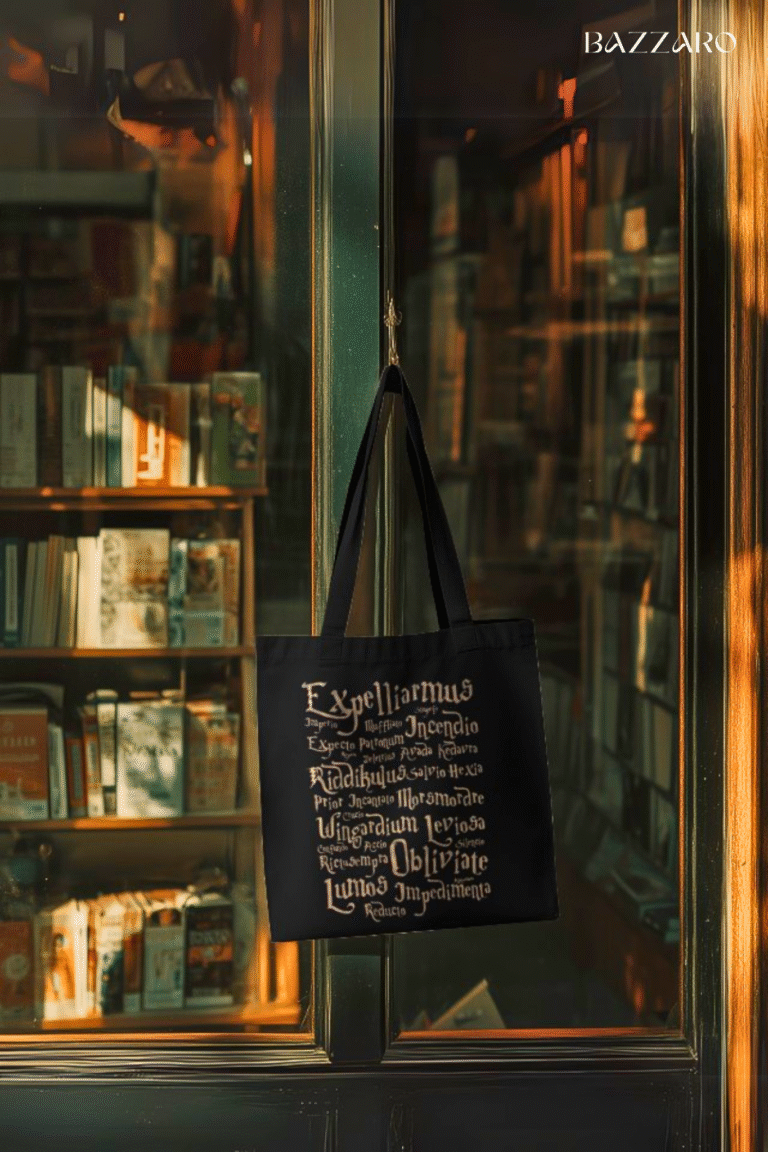 BAZZARO
Expelliarmus
Imperio Muffliato Incendio
Expecto Patronum Avada Kedavra
Riddikulus Salvio Hexia
Prior Incantato Morsmordre
Crucio
Wingardium Leviosa
Confundo Accio Silencio
Rictusempra Obliviate
Lumos Impedimenta
Reducto